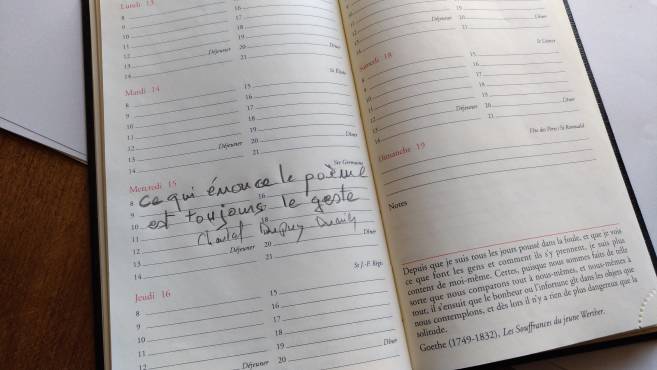 Lundi 13
8
9
10
11
12
13 Déjeuner
14
16
17
18
19
20 Dîner
21
Mardi 14 Ste Élisée
8
9
10
11
12
13 Déjeuner
14
15
16
17
18
19
20 Dîner
21
Mercredi 15 Ste Germaine
8 ce qui énonce le poème
9
10 est toujours le geste
11
12 Déjeuner
13
14
16
18
20 Dîner
21
Jeudi 16 St J.-F. Régis
8
9
10
11
12 Déjeuner
15
16
17
18
19
20 Dîner
8
9
10
11
12 Déjeuner
13
14
19
20 Dîner
21
Samedi 18 St Léonce
8
9
10
11
12 Déjeuner
13
14
15
16
17
18
19
20 Dîner
21
Dimanche 19 Fête des Pères / St Romuald
Notes
Depuis que je suis tous les jours poussé dans la foule, et que je vois
ce que font les gens et comment ils s'y prennent, je suis plus
content de moi-même. Certes, puisque nous sommes faits de telle
sorte que nous comparons tout à nous-mêmes, et nous-mêmes à
tout, il s'ensuit que le bonheur ou l'infortune gît dans les objets que
nous contemplons, et dès lors il n'y a rien de plus dangereux que la
solitude.
Goethe (1749-1832), Les Souffrances du jeune Werther.